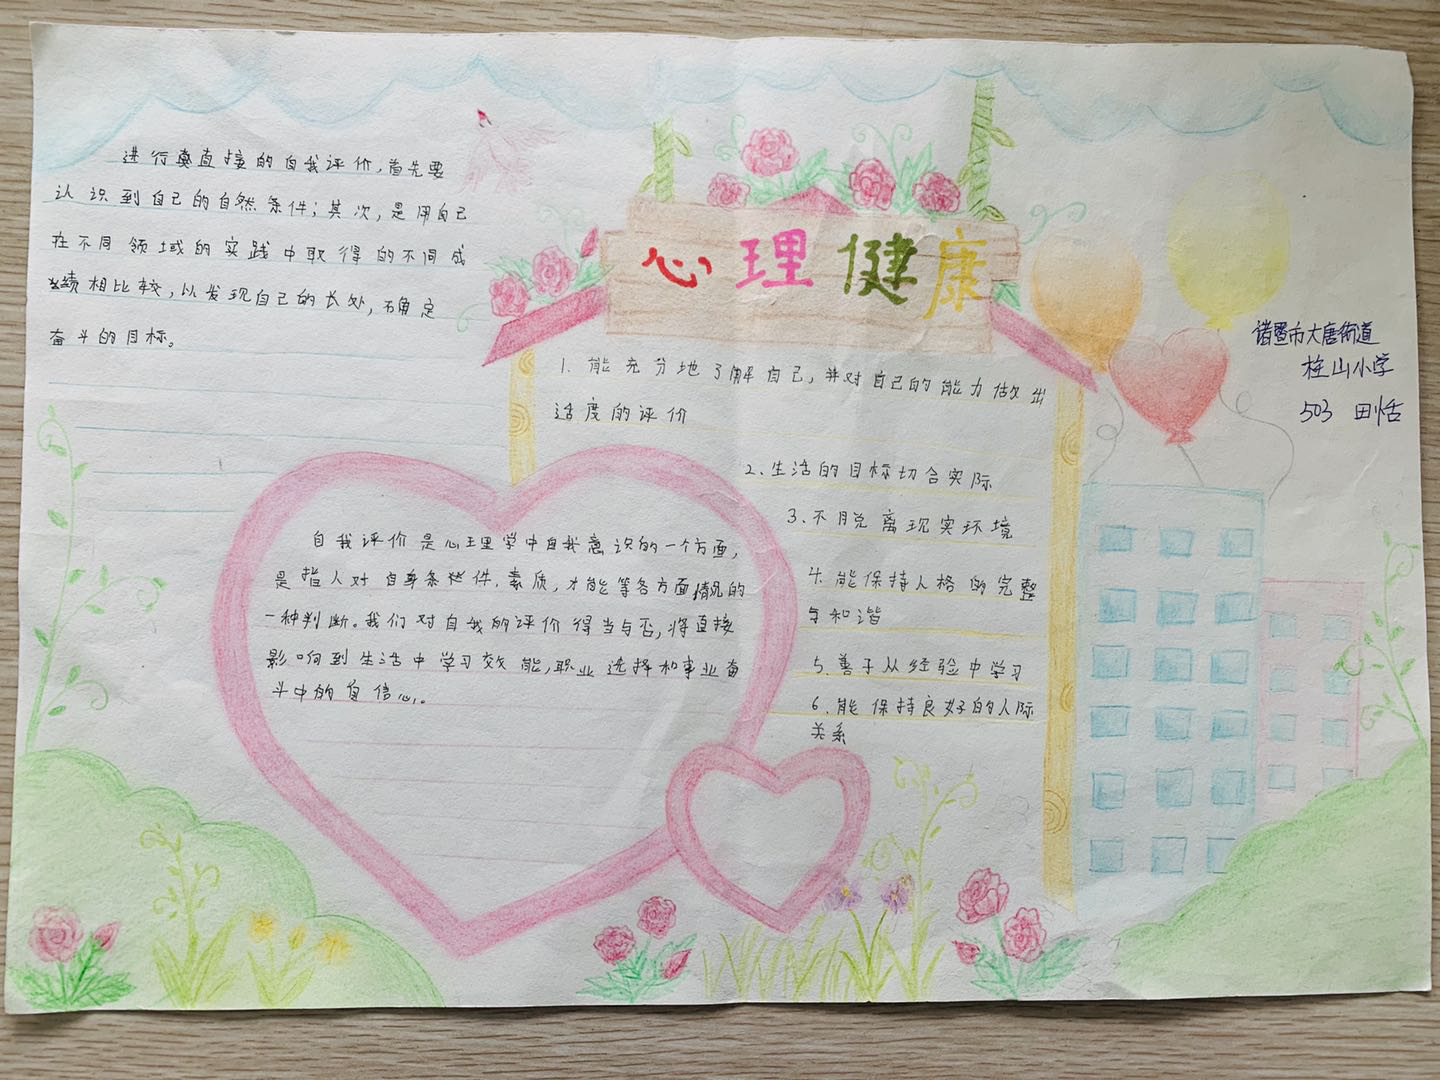 心理健康
进行真直接的自我评价,首先要
认识到自己的自然条件;其次,是用自己
在不同领域的实践中取得的不同成
绩相比较,以发现自己的长处,确定
奋斗的目标。
1.能充分地了解自己,并对自己的能力做出
适度的评价
2.生活的目标切合实际
3.不脱离现实环境
4.能保持人格的完整
与和谐
5.善于从经验中学习
6.能保持良好的人际
关系
自我评价是心理学中自我意识的一个方面,
是指人对自身条件、素质,才能等各方面情况的
一种判断。我们对自我的评价得当与否,将直接
影响到生活中学习效能,职业选择和事业奋
斗中的自信心。
诸暨市大唐街道
柱山小学
503 田恬